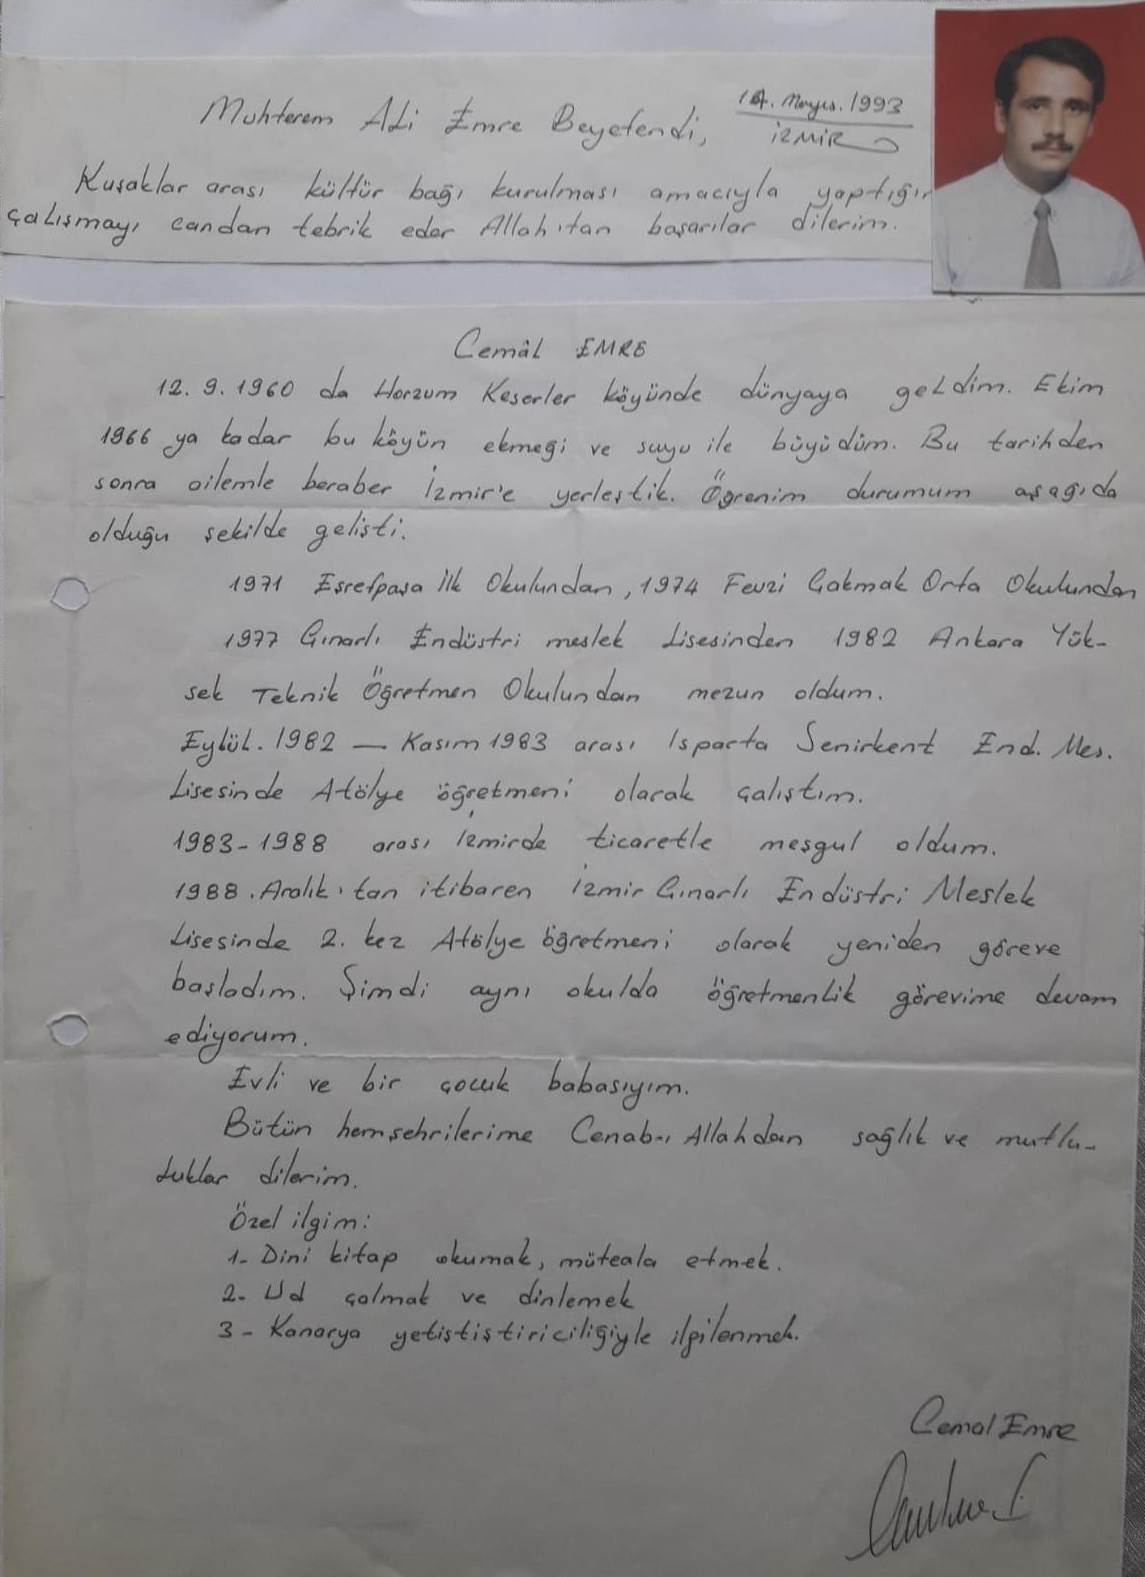 Muhterem Ali Emre Beyefendi,
Mayıs.1993
İZMİR
Kuşaklar arası kültür bağı kurulması amacıyla yaptığın
çalışmayı candan tebrik eder Allah'tan başarılar dilerim.
Cemâl EMRE
12.9.1960 da Horzum Keserler köyünde dünyaya geldim. Ekim
1966 ya kadar bu köyün ekmeği ve suyu ile büyüdüm. Bu tarihden
sonra ailemle beraber İzmir'e yerleştik. Öğrenim durumum aşağıda
olduğu şekilde gelişti.
1971 Eşrefpaşa İlk Okulundan, 1974 Fevzi Çakmak Orta Okulundan
1977 Çınarlı Endüstri meslek Lisesinden 1982 Ankara Yük-
sek Teknik Öğretmen Okulundan mezun oldum.
Eylül.1982 — Kasım 1983 arası Isparta Senirkent End. Mes.
Lisesinde Atölye öğretmeni olarak çalıştım.
1983-1988 arası İzmirde ticaretle meşgul oldum.
1988.Aralık'tan itibaren İzmir Çınarlı Endüstri Meslek
Lisesinde 2. kez Atölye öğretmeni olarak yeniden göreve
başladım. Şimdi aynı okulda öğretmenlik görevime devam
ediyorum.
Evli ve bir çocuk babasıyım.
Bütün hemşehrilerime Cenab-ı Allahdan sağlık ve mutlu-
luklar dilerim.
Özel ilgim:
1- Dini kitap okumak, müteala etmek.
2- Ud çalmak ve dinlemek
3- Kanarya yetiştiştiriciliğiyle ilgilenmek.
Cemal Emre